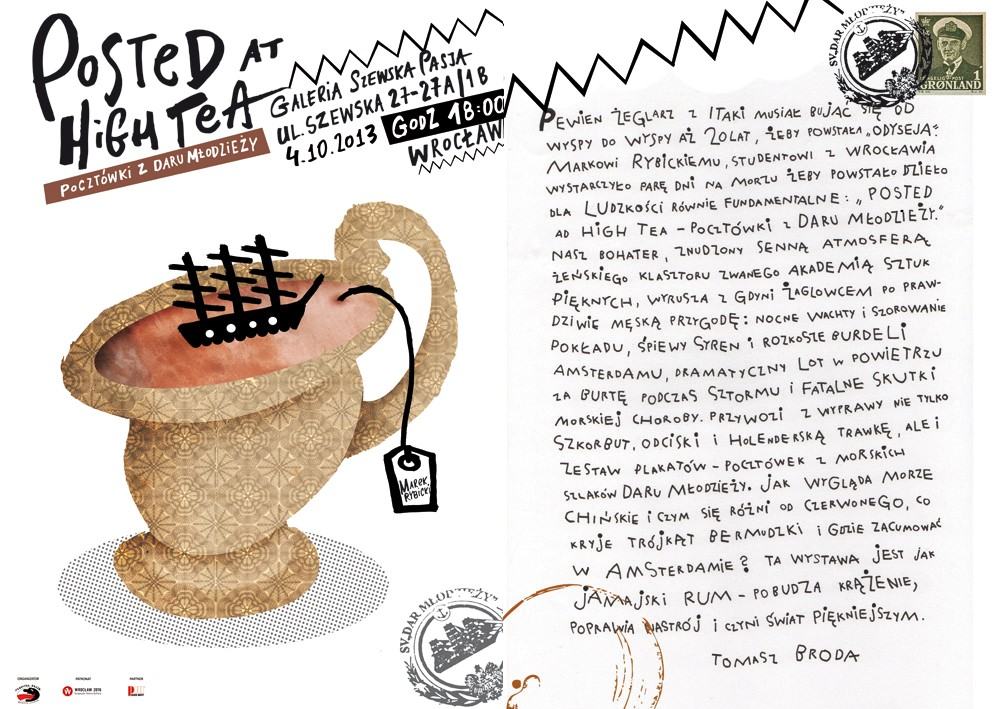 POSTED AT
HIGH TEA
POCZTÓWKI Z DARU MŁODZIEŻY
GALERIA SZEWSKA PASJA
UL. SZEWSKA 27-27A/1B
4.10.2013 GODZ 18:00
WROCŁAW
MAREK
RYBICKI
SV.DAR MŁODZIEŻY"
ORGANIZATOR
PATRONAT
PARTNER
WROCŁAW 2016
SV.DAR MŁODZIEŻY"
GRØNLAND
1
PEWIEN ŻEGLARZ Z ITAKI MUSIAŁ BUJAĆ SIĘ OD
WYSPY DO WYSPY AŻ 20 LAT, ŻEBY POWSTAŁA „ODYSEJA".
MARKOWI RYBICKIEMU, STUDENTOWI Z WROCŁAWIA
WYSTARCZYŁO PARĘ DNI NA MORZU ŻEBY POWSTAŁO DZIEŁO
DLA LUDZKOŚCI RÓWNIE FUNDAMENTALNE: „POSTED
AD HIGH TEA - POCZTÓWKI Z DARU MŁODZIEŻY."
NASZ BOHATER, ZNUDZONY SENNĄ ATMOSFERĄ
ŻEŃSKIEGO KLASZTORU ZWANEGO AKADEMIĄ SZTUK
PIĘKNYCH, WYRUSZA Z GDYNI ŻAGLOWCEM PO PRAW-
DZIWIE MĘSKĄ PRZYGODĘ: NOCNE WACHTY I SZOROWANIE
POKŁADU, ŚPIEWY SYREN I ROZKOSZE BURDELI
AMSTERDAMU, DRAMATYCZNY LOT W POWIETRZU
ZA BURTĘ PODCZAS SZTORMU I FATALNE SKUTKI
MORSKIEJ CHOROBY. PRZYWOZI Z WYPRAWY NIE TYLKO
SZKORBUT, ODCISKI I HOLENDERSKĄ TRAWKĘ, ALE I
ZESTAW PLAKATÓW - POCZTÓWEK Z MORSKICH
SZLAKÓW DARU MŁODZIEŻY. JAK WYGLĄDA MORZE
CHIŃSKIE I CZYM SIĘ RÓŻNI OD CZERWONEGO, CO
KRYJE TRÓJKĄT BERMUDZKI I GDZIE ZACUMOWAĆ
W AMSTERDAMIE? TA WYSTAWA JEST JAK
JAMAJSKI RUM - POBUDZA KRĄŻENIE,
POPRAWIA NASTRÓJ I CZYNI ŚWIAT PIĘKNIEJSZYM.
TOMASZ BRODA